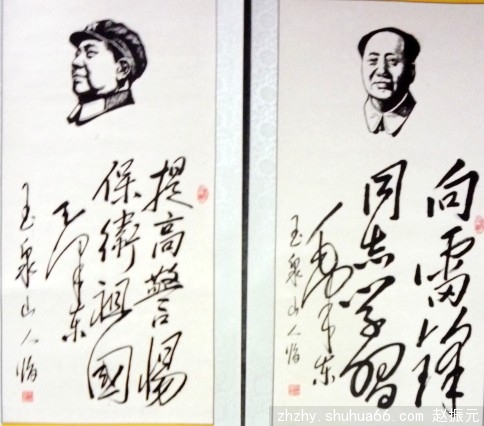 向雷锋
同志学習
毛泽东
玉泉山人临
提高警惕
保衛祖國
毛泽东
玉泉山人临
zhzhy.shuhua66.com 赵振元